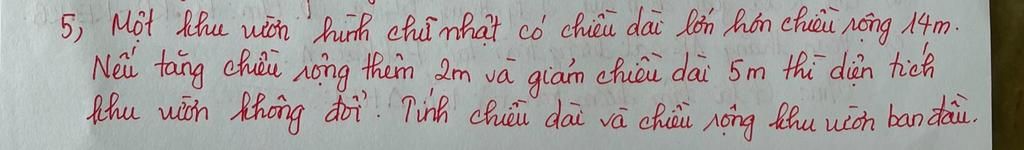 5, Một khu vườn hình chữ nhật có chiều dài lớn hơn chiều rộng 14m.
Nếu tăng chiều rộng thêm 2m và giảm chiều dài 5m thì diện tích
khu vườn không đổi. Tính chiều dài và chiều rộng khu vườn ban đầu.